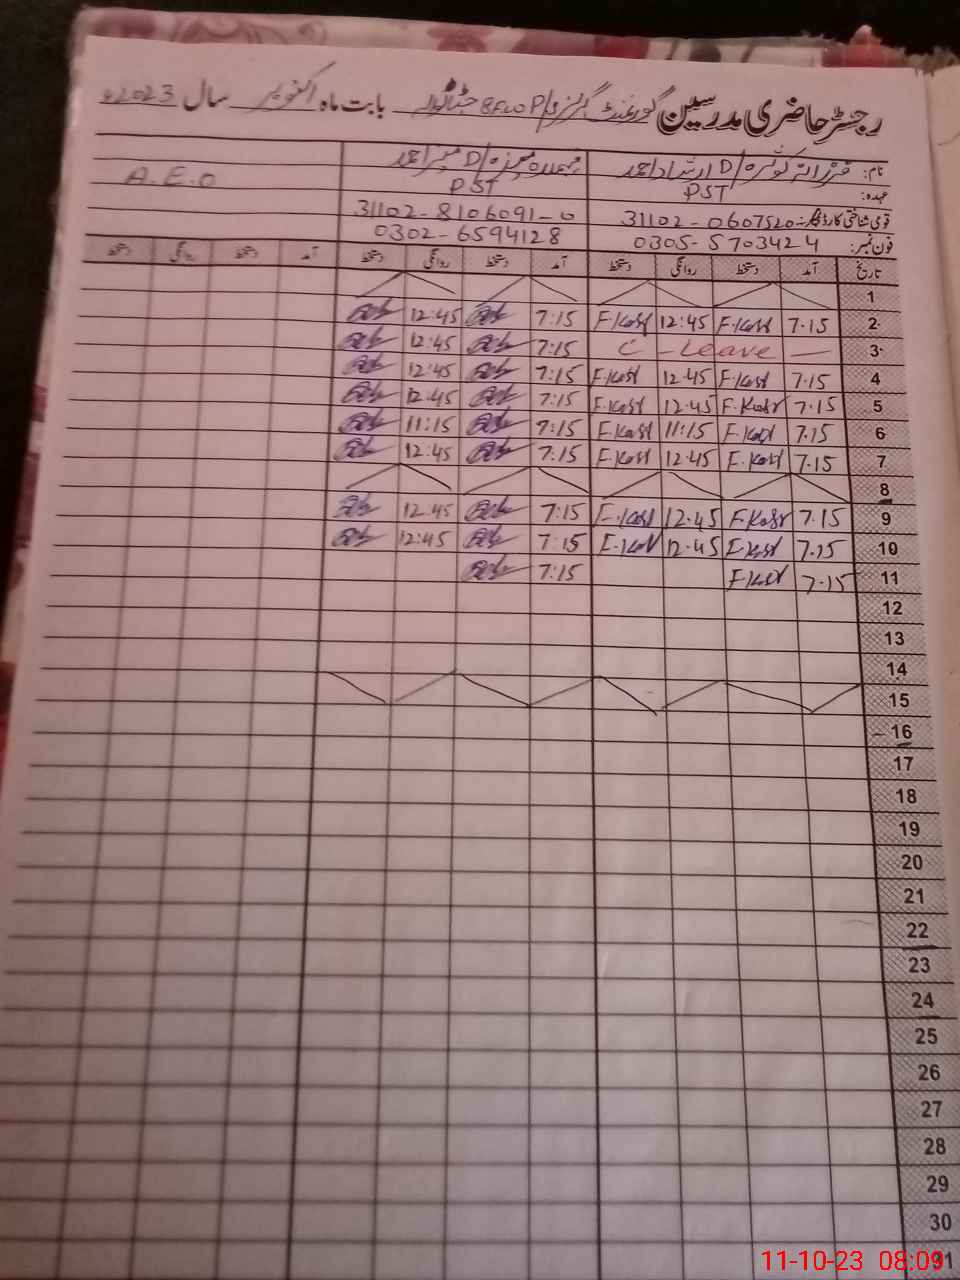 رجسٹر حاضری مدرسین گورنمنٹ گرلز P/S 8FWOP بابت ماہ اکتوبر سال 2023ء
نام: فرزانہ کوثر D/O ارشاد احمد D/O منیر احمد
عہدہ: PST PST A.E.O
قومی شناختی کارڈ نمبر: 31102-0607520- 31102-8106091-0
فون نمبر: 0305-5703424 0302-6594128
تاریخ آمد دستخط روانگی دستخط آمد دستخط روانگی دستخط آمد دستخط روانگی دستخط
1
2 7.15 F.Kosr 12:45 F.Kosr 7:15 12:45
3 C - Leave — 7:15 12:45
4 7.15 F.Kosr 12.45 F.Kosr 7:15 12:45
5 7.15 F.Kosr 12.45 F.Kosr 7:15 12:45
6 7.15 F.Kosr 11:15 F.Kosr 7:15 11:15
7 7.15 F.Kosr 12.45 F.Kosr 7:15 12:45
8
9 7.15 F.Kosr 12.45 F.Kosr 7:15 12:45
10 7.15 F.Kosr 12.45 F.Kosr 7:15 12:45
11 7.15 F.Kosr 7:15
12
13
14
15
16
17
18
19
20
21
22
23
24
25
26
27
28
29
30
31
11-10-23 08:09